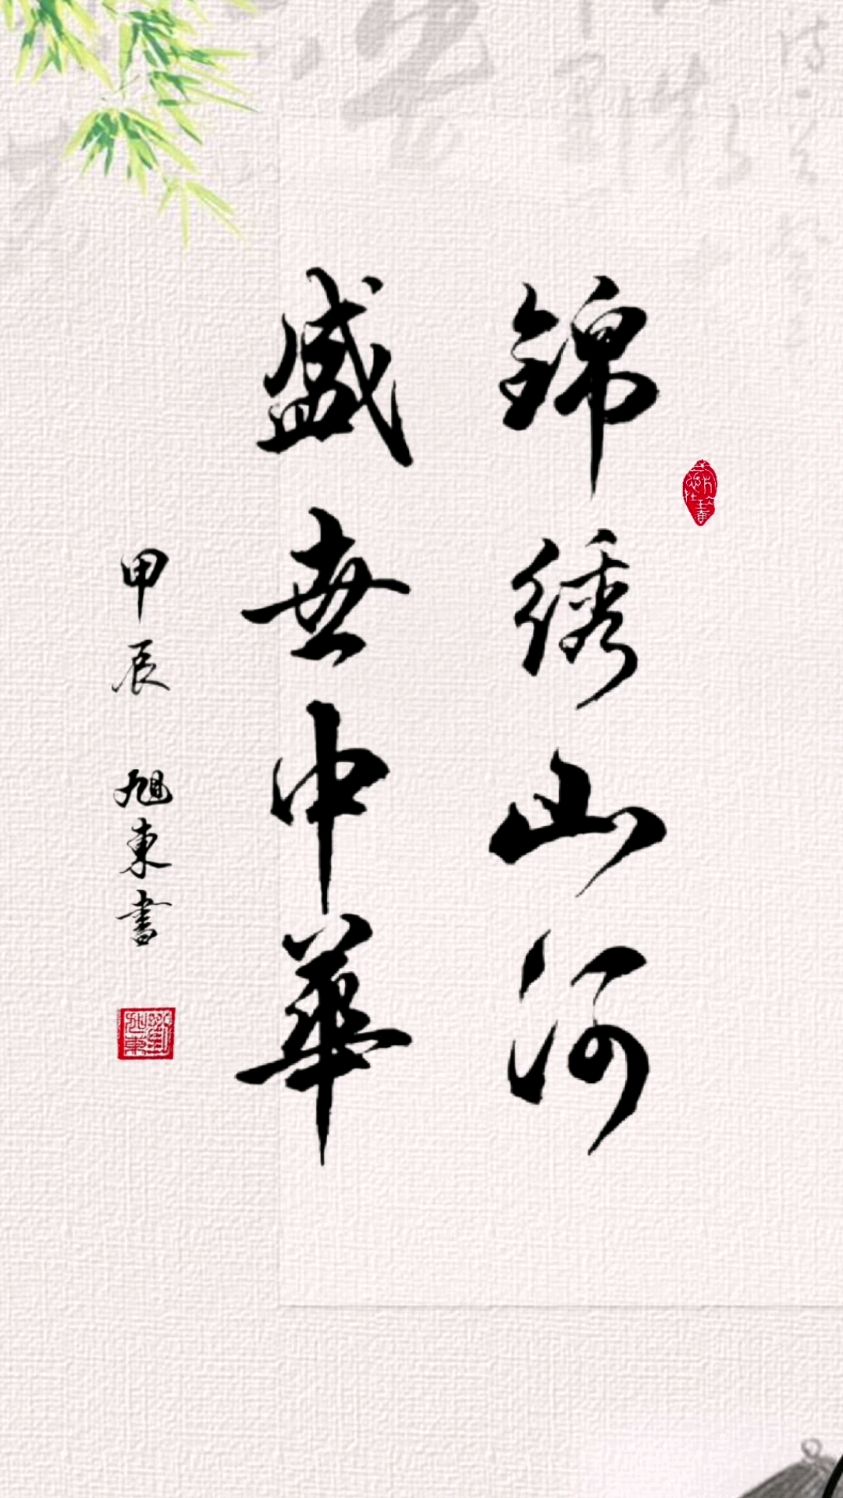 錦綉山河
盛世中華
甲辰 旭東書